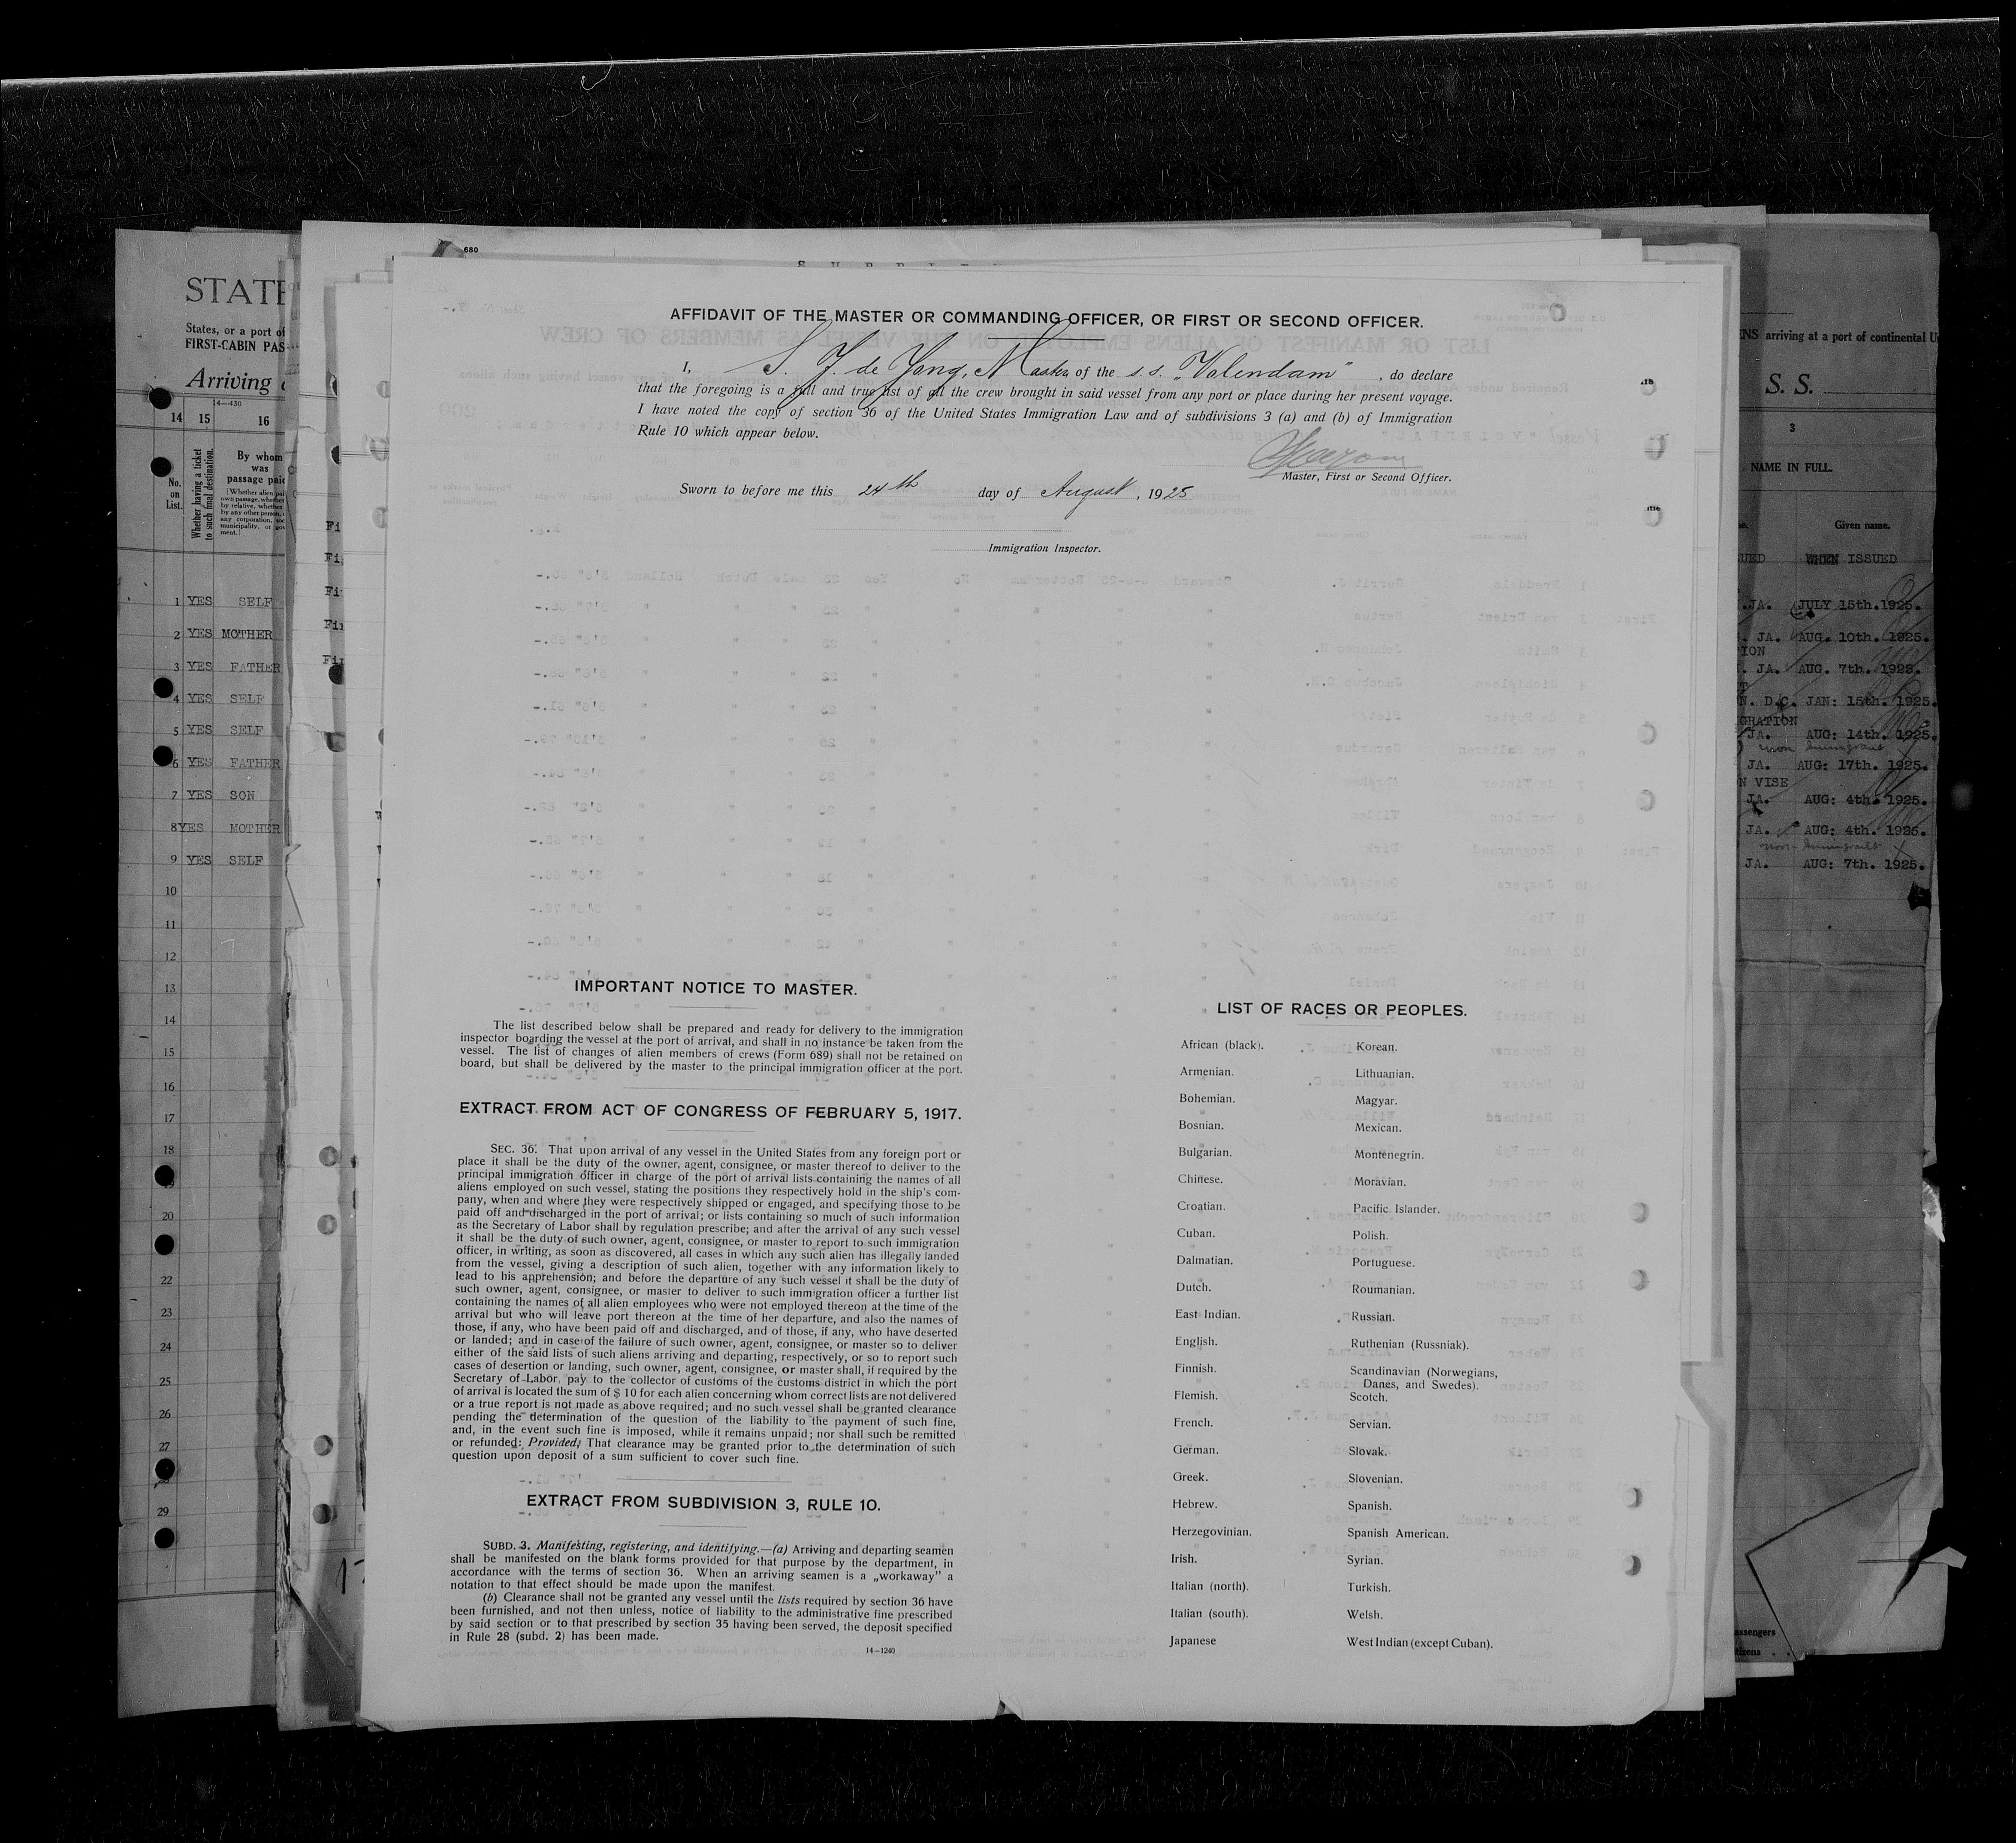 680
STATE
States, or a port of
FIRST-CABIN PAS
Arriving
14—430
14 15 16
No. on List.
Whether having a ticket to such final destination.
By whom was passage paid
1 YES SELF
2 YES MOTHER
3 YES FATHER
4 YES SELF
5 YES SELF
6 YES FATHER
7 YES SON
8 YES MOTHER
9 YES SELF
10
11
12
13
14
15
16
17
18
20
22
23
24
25
26
27
29
AFFIDAVIT OF THE MASTER OR COMMANDING OFFICER, OR FIRST OR SECOND OFFICER.
I, S. J. de Jong, Master of the s.s. „Volendam" , do declare
that the foregoing is a full and true list of all the crew brought in said vessel from any port or place during her present voyage.
I have noted the copy of section 36 of the United States Immigration Law and of subdivisions 3 (a) and (b) of Immigration
Rule 10 which appear below.
Master, First or Second Officer.
Sworn to before me this 24th day of August, 1925
Immigration Inspector.
IMPORTANT NOTICE TO MASTER.
The list described below shall be prepared and ready for delivery to the immigration
inspector boarding the vessel at the port of arrival, and shall in no instance be taken from the
vessel. The list of changes of alien members of crews (Form 689) shall not be retained on
board, but shall be delivered by the master to the principal immigration officer at the port.
EXTRACT FROM ACT OF CONGRESS OF FEBRUARY 5, 1917.
SEC. 36. That upon arrival of any vessel in the United States from any foreign port or
place it shall be the duty of the owner, agent, consignee, or master thereof to deliver to the
principal immigration officer in charge of the port of arrival lists containing the names of all
aliens employed on such vessel, stating the positions they respectively hold in the ship's com-
pany, when and where they were respectively shipped or engaged, and specifying those to be
paid off and discharged in the port of arrival; or lists containing so much of such information
as the Secretary of Labor shall by regulation prescribe; and after the arrival of any such vessel
it shall be the duty of such owner, agent, consignee, or master to report to such immigration
officer, in writing, as soon as discovered, all cases in which any such alien has illegally landed
from the vessel, giving a description of such alien, together with any information likely to
lead to his apprehension; and before the departure of any such vessel it shall be the duty of
such owner, agent, consignee, or master to deliver to such immigration officer a further list
containing the names of all alien employees who were not employed thereon at the time of the
arrival but who will leave port thereon at the time of her departure, and also the names of
those, if any, who have been paid off and discharged, and of those, if any, who have deserted
or landed; and in case of the failure of such owner, agent, consignee, or master so to deliver
either of the said lists of such aliens arriving and departing, respectively, or so to report such
cases of desertion or landing, such owner, agent, consignee, or master shall, if required by the
Secretary of Labor, pay to the collector of customs of the customs district in which the port
of arrival is located the sum of $ 10 for each alien concerning whom correct lists are not delivered
or a true report is not made as above required; and no such vessel shall be granted clearance
pending the determination of the question of the liability to the payment of such fine,
and, in the event such fine is imposed, while it remains unpaid; nor shall such be remitted
or refunded: Provided, That clearance may be granted prior to the determination of such
question upon deposit of a sum sufficient to cover such fine.
EXTRACT FROM SUBDIVISION 3, RULE 10.
SUBD. 3. Manifesting, registering, and identifying.—(a) Arriving and departing seamen
shall be manifested on the blank forms provided for that purpose by the department, in
accordance with the terms of section 36. When an arriving seamen is a „workaway" a
notation to that effect should be made upon the manifest.
(b) Clearance shall not be granted any vessel until the lists required by section 36 have
been furnished, and not then unless, notice of liability to the administrative fine prescribed
by said section or to that prescribed by section 35 having been served, the deposit specified
in Rule 28 (subd. 2) has been made.
14—1240
LIST OF RACES OR PEOPLES.
African (black). Korean.
Armenian. Lithuanian.
Bohemian. Magyar.
Bosnian. Mexican.
Bulgarian. Montenegrin.
Chinese. Moravian.
Croatian. Pacific Islander.
Cuban. Polish.
Dalmatian. Portuguese.
Dutch. Roumanian.
East Indian. Russian.
English. Ruthenian (Russniak).
Finnish. Scandinavian (Norwegians,
Danes, and Swedes).
Flemish. Scotch.
French. Servian.
German. Slovak.
Greek. Slovenian.
Hebrew. Spanish.
Herzegovinian. Spanish American.
Irish. Syrian.
Italian (north). Turkish.
Italian (south). Welsh.
Japanese West Indian (except Cuban).
ENS arriving at a port of continental U
S. S.
3
NAME IN FULL.
Given name.
UED WHEN ISSUED
JA. JULY 15th. 1925.
JA. AUG. 10th. 1925.
ION
JA. AUG. 7th. 1925.
N. D.C. JAN: 15th. 1925.
GRATION
JA. AUG: 14th. 1925.
non Immigrant
JA. AUG: 17th. 1925.
N VISE
JA. AUG: 4th. 1925.
JA. AUG: 4th. 1925.
non-Immigrant
JA. AUG: 7th. 1925.
assengers
tizens